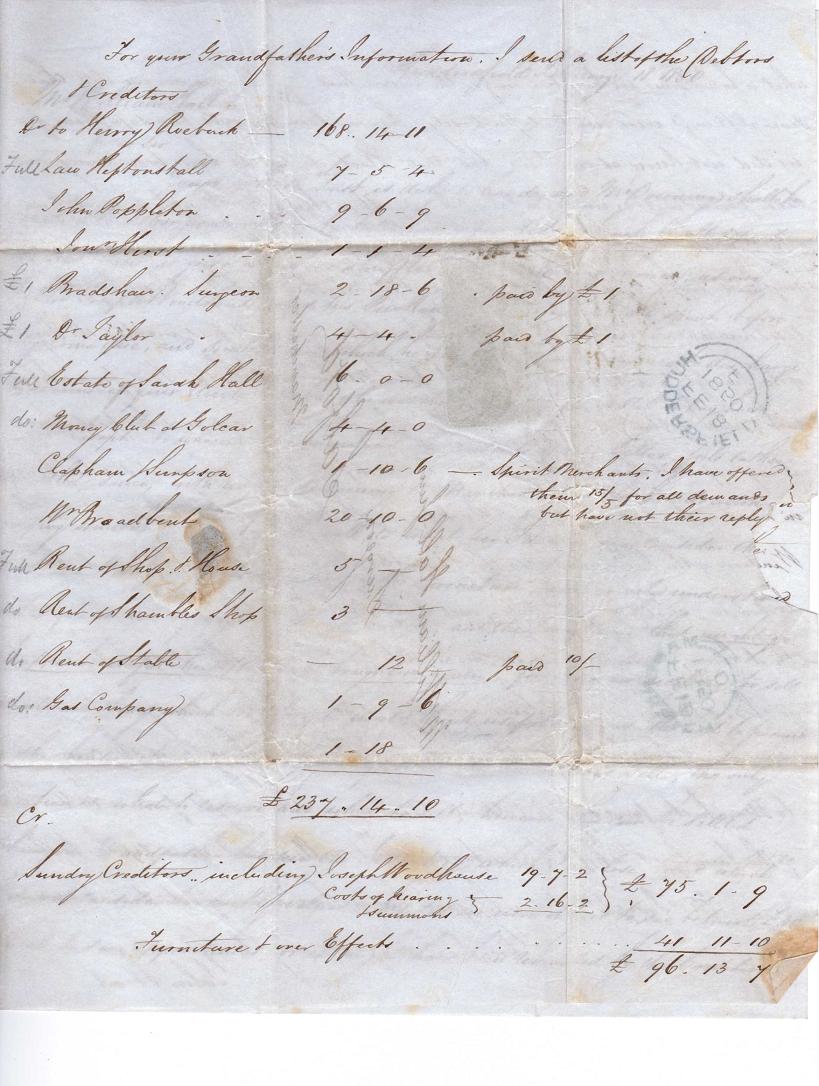 For your Grandfather's Information. I send a list of the Debtors
& Creditors
Dr to Henry Roebuck — 168.. 14-11
Full Law Heptonstall 7-5-4
John Poppleton .. . 9-6-9
Jon Hirst - .. - .. 1-1-4
1 Bradshaw. Surgeon 2-18-6 . paid by £1
1 Dr Taylor . 4-4. paid by £1
Full Estate of Sarah Hall 6-0-0
do: Money Club at Golcar 4-4-0
Clapham Simpson 1-10-6 — Spirit Merchants. I have offered
them 15/ for all demands
but have not their reply
Wm Broadbent 20-10-0
Full Rent of Shop & House 5 —
do Rent of Shambles Shop 3 —
do Rent of Stable — 12 paid 10/-
do: Gas Company 1-9-6
1-18
£ 237.. 14.. 10
Cr.
Sundry Creditors.. including Joseph Woodhouse 19-7-2 } £ 75. 1-9
Costs of hearing & summons } 2.16-2
Furniture & over Effects . . . . . . . . . . 41 11-10
£ 96. 13 7
HUDDERSFIELD
FE 18